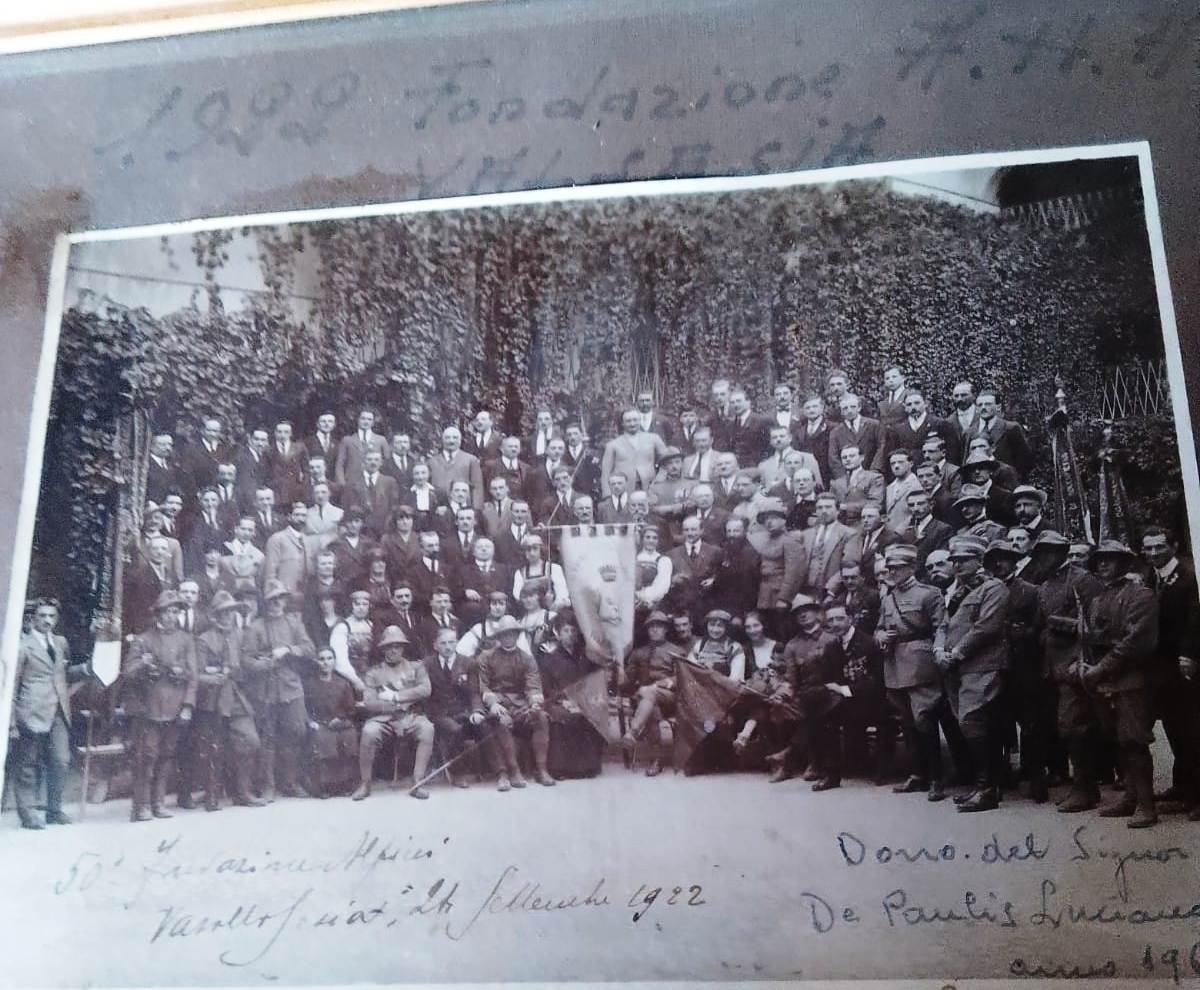 1922 Fondazione A.N.A.
VALSESIA
50° Fondazione Alpini
Varallo Sesia, 24 Settembre 1922
Dono del Signor
De Paulis Luciano
anno 196